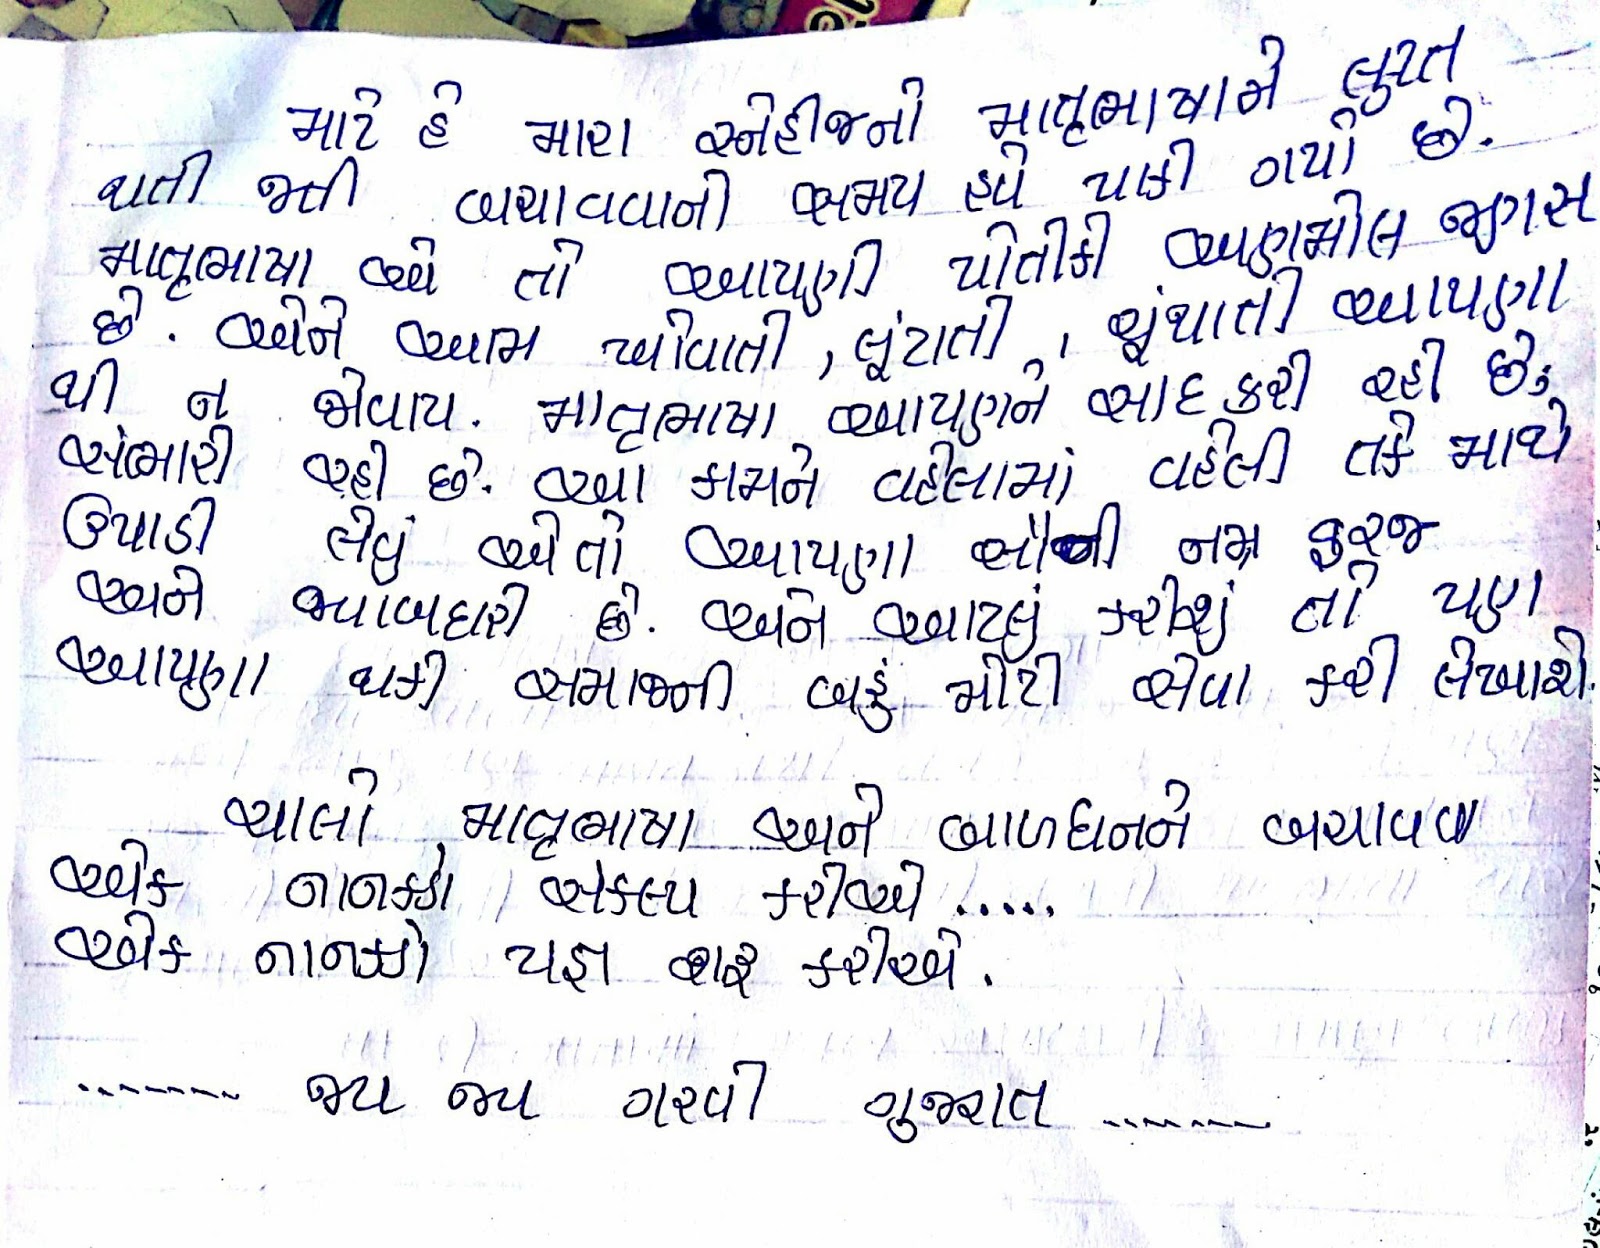 માટે હે મારા સ્નેહીજનો માતૃભાષાને લુપ્ત
થતી જતી બચાવવાનો સમય હવે પાકી ગયો છે.
માતૃભાષા એ તો આપણી પોતીકી અણમોલ જણસ
છે. એને આમ ખોવાતી, લૂંટાતી, ચૂંથાતી આપણા
થી ન જોવાય. માતૃભાષા આપણને સાદ કરી રહી છે,
સંભારી રહી છે. આ કામને વહેલામાં વહેલી તકે માથે
ઉપાડી લેવું એ તો આપણા સૌની નમ્ર ફરજ
અને જવાબદારી છે. અને આટલું કરીશું તો પણ
આપણા થકી સમાજની બહું મોટી સેવા કરી લેખાશે.
ચાલો, માતૃભાષા અને બાળધનને બચાવવા
એક નાનકડો સંકલ્પ કરીએ .....
એક નાનકડો યજ્ઞ શરૂ કરીએ.
........ જય જય ગરવી ગુજરાત ........